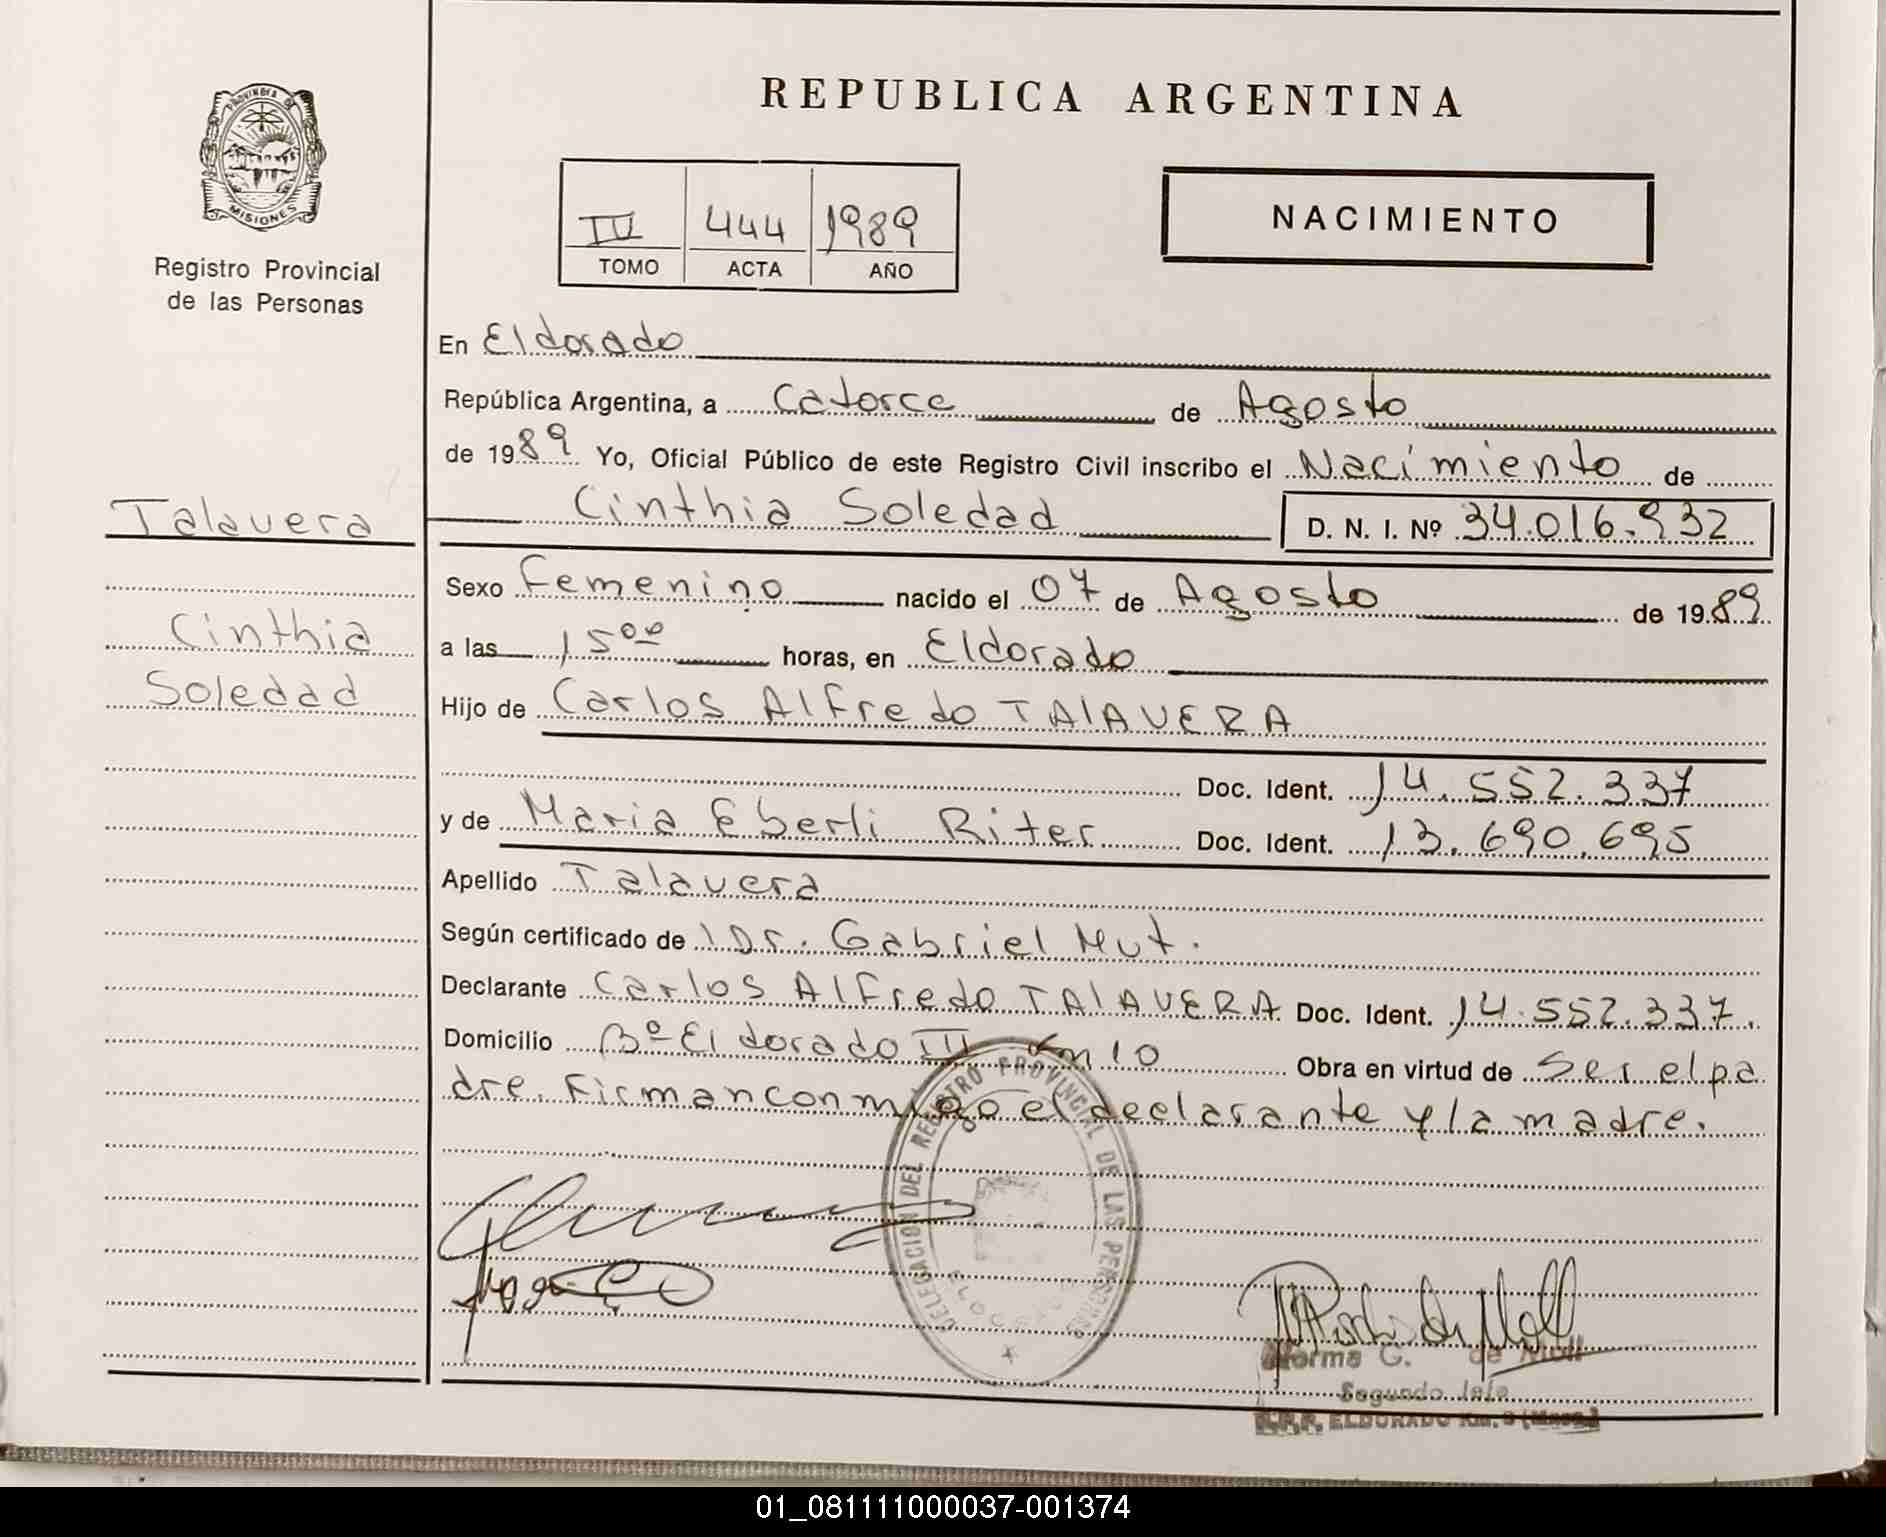 PROVINCIA DE
MISIONES
Registro Provincial
de las Personas
REPUBLICA ARGENTINA
III 444 1989
TOMO ACTA AÑO
NACIMIENTO
En Eldorado
República Argentina, a Catorce de Agosto
de 1989 Yo, Oficial Público de este Registro Civil inscribo el Nacimiento de
Talavera
Cinthia Soledad D. N. I. Nº 34.016.932
Sexo Femenino nacido el 07 de Agosto de 1989
Cinthia
a las 15⁰⁰ horas, en Eldorado
Soledad
Hijo de Carlos Alfredo TALAVERA
Doc. Ident. 14.552.337
y de Maria Eberli Riter Doc. Ident. 13.690.695
Apellido Talavera
Según certificado de Dr. Gabriel Mut.
Declarante Carlos Alfredo TALAVERA Doc. Ident. 14.552.337.
Domicilio Bº Eldorado III Km 10 Obra en virtud de Ser el pa
dre. Firman conmigo el declarante y la madre.
DELEGACION DEL REGISTRO PROVINCIAL DE LAS PERSONAS
ELDORADO
Norma G. de Moll
Segundo Jefe
R.P.P. ELDORADO Km. 9 (Mnes.)
01_081111000037-001374